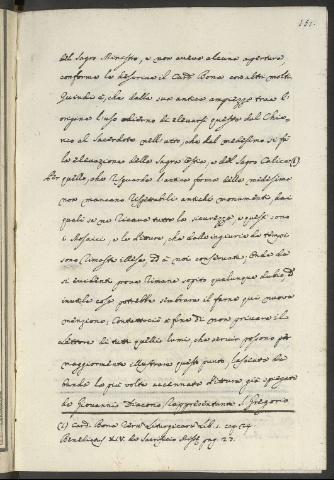 151.
del Sagro Ministro, e non aveva alcuna apertura,
conforme lo descrive il Card. Bona con altri molti.
Quindi è, che dalla sua antica ampiezza trae l'
origine l'uso odierno di elevarsi questa dal Chie-
rico al Sacerdote nell'atto, che dal medesimo si fà
la elevazione della Sagra Ostia, e del Sagro Calice (1)
Per quello, che riguarda l'antica forma della medesima
non mancano rispettabili antichi monumenti, dai
quali se ne ricava tutta la sicurezza, e questi sono
i Mosaici, e le Pitture, che dalle ingiurie de tempi
sono rimaste illese, ed a noi conservate. Onde da
si evidenti prove rimane sopito qualunque dubio, ed
inutile cosa potrebbe sembrare il farne qui nuova
menzione; Contuttociò a fine di non privare il
lettore di tutti quelli lumi, che servir possono per
maggiormente illustrare questo punto, lasciata da
banda la più volte accennata Pittura già spiegata
da Giovanni Diacono rappresentante S. Gregorio
(1) Card. Bona Rerum Liturgicar. Lib. 1. cap. 24
Benedictus XIV. de Sacrificio Missæ pag. 27.